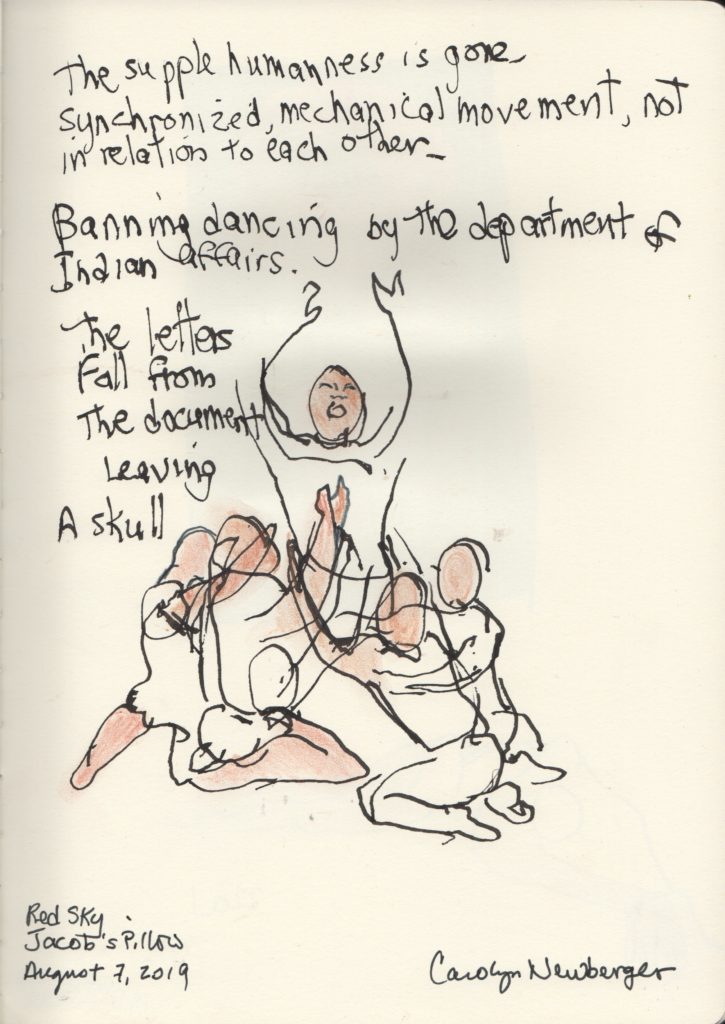 The supple humanness is gone_
synchronized, mechanical movement, not
in relation to each other_
Banning dancing by the department of
Indian affairs.
The letters
Fall from
The document
Leaving
A skull
Red Sky
Jacob's Pillow
August 7, 2019
Carolyn Newberger